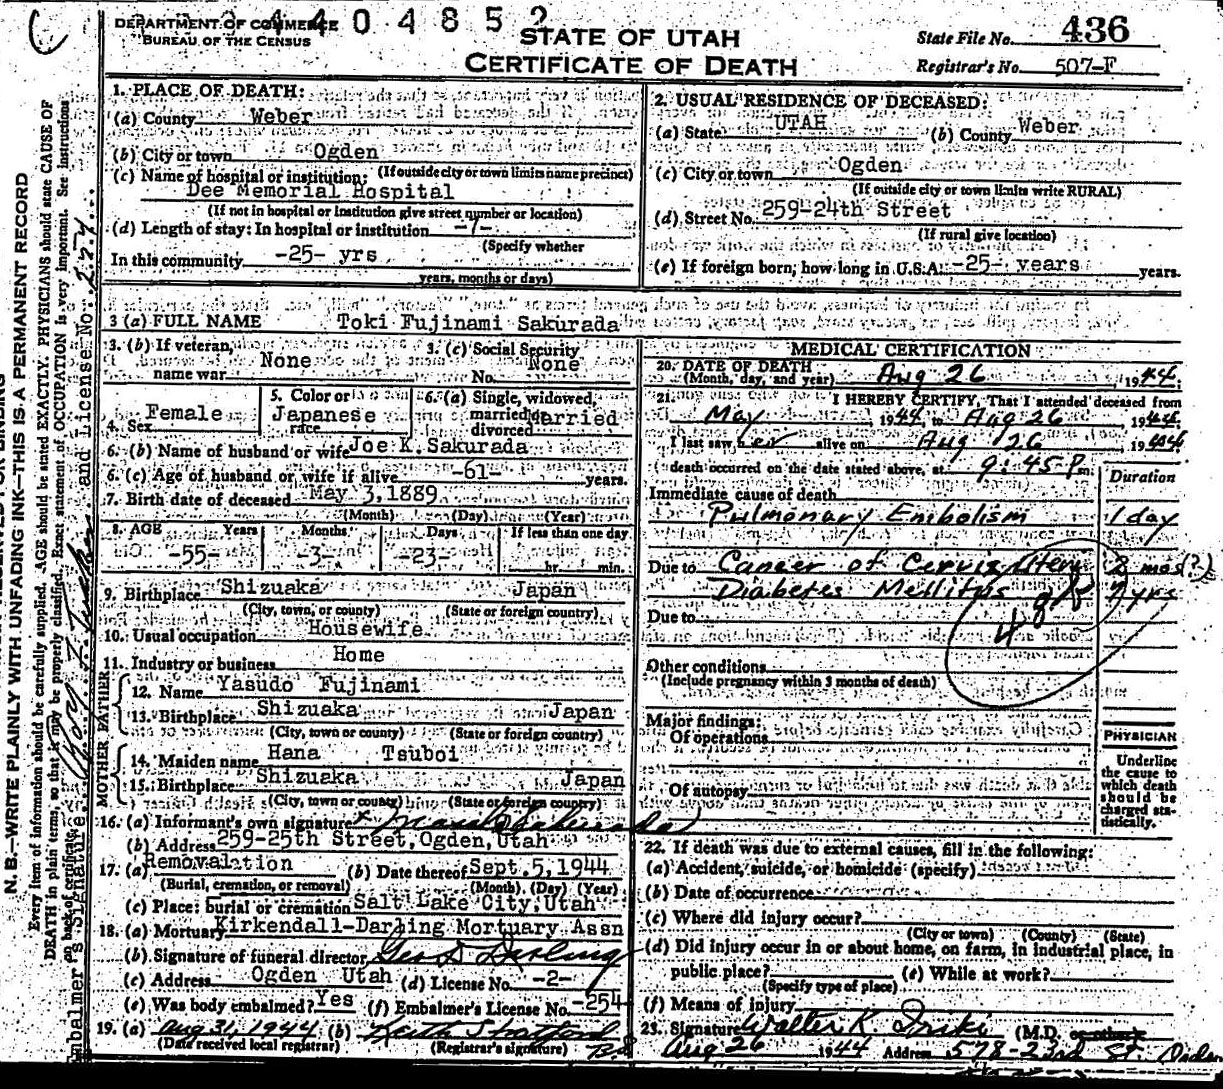 DEPARTMENT OF COMMERCE
BUREAU OF THE CENSUS
4404852
STATE OF UTAH
CERTIFICATE OF DEATH
State File No. 436
Registrar's No. 507-F
N. B.—WRITE PLAINLY WITH UNFADING INK—THIS IS A PERMANENT RECORD
Every item of information should be carefully supplied. AGE should be stated EXACTLY. PHYSICIANS should state CAUSE OF
DEATH in plain terms, so that it may be properly classified. Exact statement of OCCUPATION is very important. See instructions
on back of certificate.
Embalmer's Signature and License No. 227
1. PLACE OF DEATH:
(a) County Weber
(b) City or town Ogden
(If outside city or town limits name precinct)
(c) Name of hospital or institution:
Dee Memorial Hospital
(If not in hospital or institution give street number or location)
(d) Length of stay: In hospital or institution
(Specify whether
In this community -25- yrs
years, months or days)
2. USUAL RESIDENCE OF DECEASED:
(a) State UTAH (b) County Weber
(c) City or town Ogden
(If outside city or town limits write RURAL)
(d) Street No. 259-24th Street
(If rural give location)
(e) If foreign born, how long in U.S.A. -25- years years.
3 (a) FULL NAME Toki Fujinami Sakurada
3. (b) If veteran, name war None
3. (c) Social Security No. None
4. Sex Female
5. Color or race Japanese
6. (a) Single, widowed, married or divorced Married
6. (b) Name of husband or wife Joe K. Sakurada
6. (c) Age of husband or wife if alive -61- years.
7. Birth date of deceased May 3, 1889
(Month) (Day) (Year)
8. AGE Years Months Days If less than one day
-55- -3- -23- hr. min.
9. Birthplace Shizuaka Japan
(City, town, or county) (State or foreign country)
10. Usual occupation Housewife
11. Industry or business Home
FATHER
12. Name Yasudo Fujinami
13. Birthplace Shizuaka Japan
(City, town or county) (State or foreign country)
MOTHER
14. Maiden name Hana Tsuboi
15. Birthplace Shizuaka Japan
(City, town or county) (State or foreign country)
16. (a) Informant's own signature Sakurada
(b) Address 259-25th Street, Ogden, Utah
17. (a) Removalation (b) Date thereof Sept. 5, 1944
(Burial, cremation, or removal) (Month) (Day) (Year)
(c) Place: burial or cremation Salt Lake City, Utah
18. (a) Mortuary Kirkendall-Darling Mortuary Assn
(b) Signature of funeral director Geo D Darling
(c) Address Ogden Utah (d) License No. -2-
(e) Was body embalmed? Yes (f) Embalmer's License No. -254
19. (a) Aug 31, 1944 (b) Keith Stratford
(Date received local registrar) (Registrar's signature)
MEDICAL CERTIFICATION
20. DATE OF DEATH
(Month, day, and year) Aug 26 1944.
21. I HEREBY CERTIFY, That I attended deceased from
May 1944 to Aug 26, 1944.
I last saw her alive on Aug 26 1944
death occurred on the date stated above, at 9:45 P m.
Duration
Immediate cause of death
Pulmonary Embolism 1 day
Due to Cancer of Cervix Uteri 8 mos (?)
Diabetes Mellitus yrs
Due to
48
Other conditions
(Include pregnancy within 3 months of death)
Major findings:
Of operations
Of autopsy
PHYSICIAN
Underline
the cause to
which death
should be
charged sta-
tistically.
22. If death was due to external causes, fill in the following:
(a) Accident, suicide, or homicide (specify)
(b) Date of occurrence
(c) Where did injury occur?
(City or town) (County) (State)
(d) Did injury occur in or about home, on farm, in industrial place, in
public place? (e) While at work?
(Specify type of place)
(f) Means of injury
23. Signature Walter K. Iriki (M.D. or other)
Aug 26 1944 Address 578-23rd St. Ogden